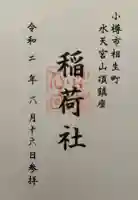 小樽市相生町
水天宮山頂鎮座
稲荷社
令和二年八月十六日参拝